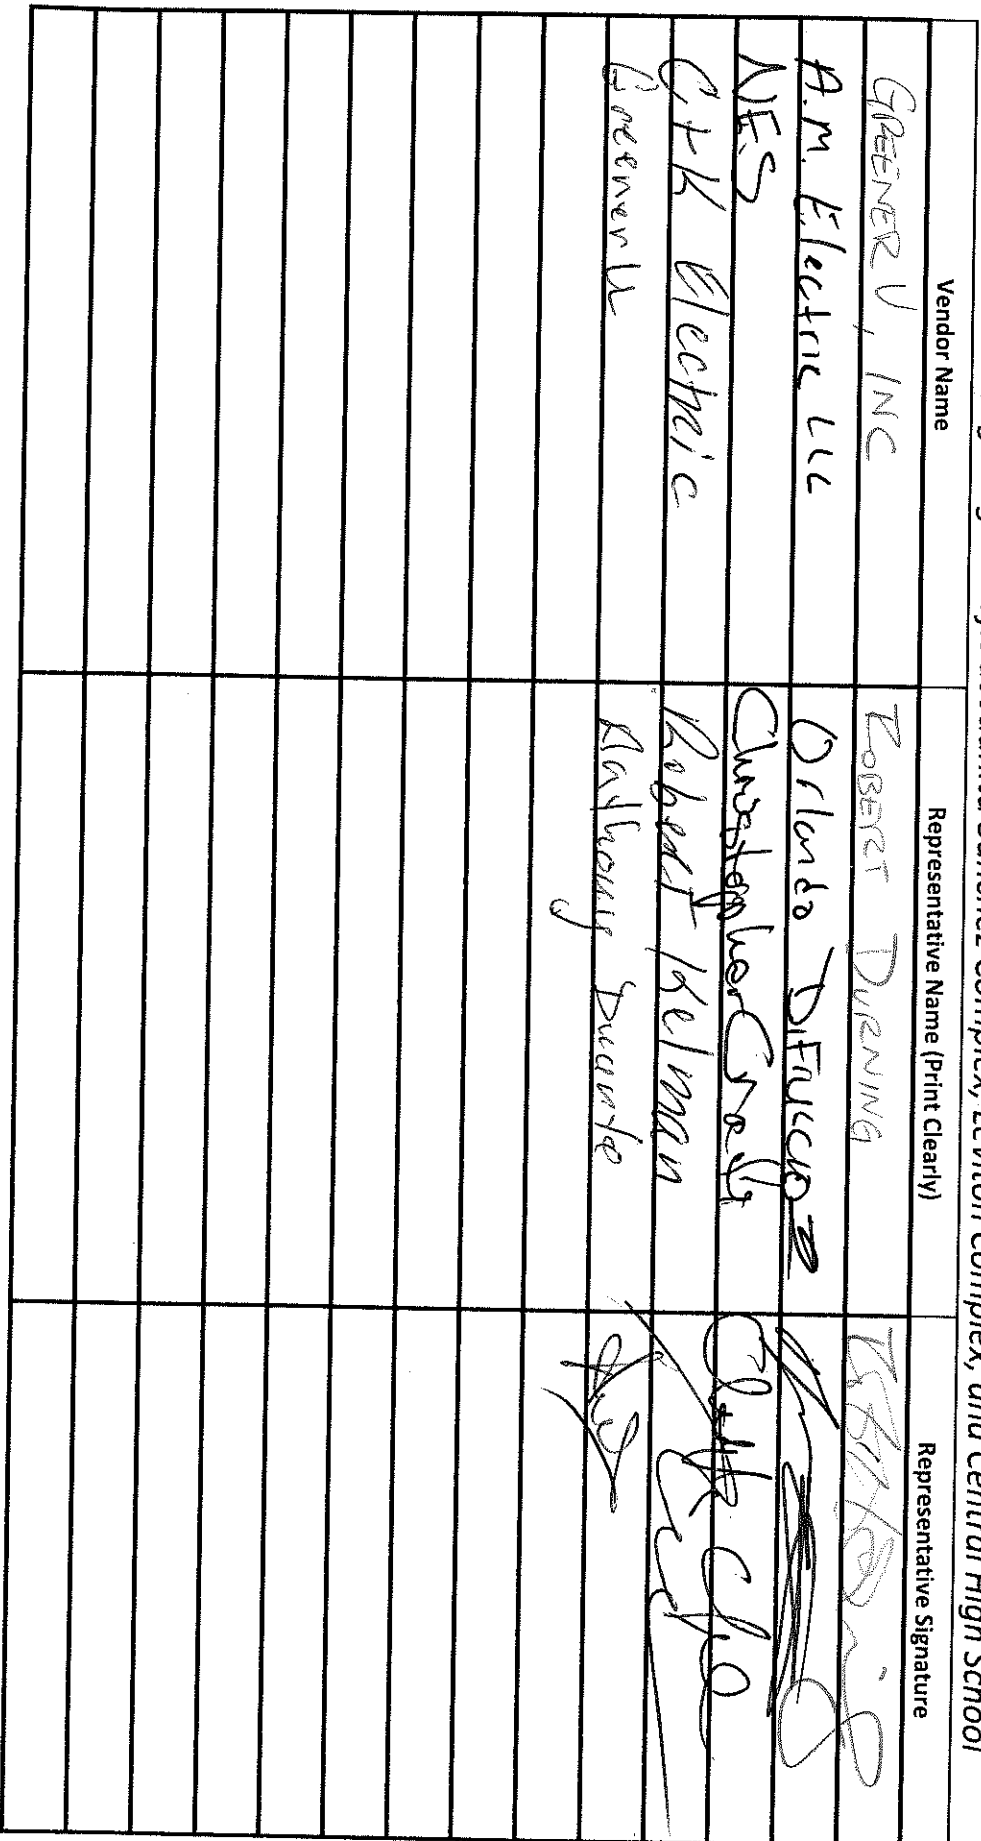 Complex, Leviton Complex, and Central High School
Vendor Name Representative Name (Print Clearly) Representative Signature
GREENER U, INC ROBERT DURNING
A.M. Electric LLC Orlando
N.E.S Christopher
C+K Electric Robert Kelman
GreenerU Anthony Duarte